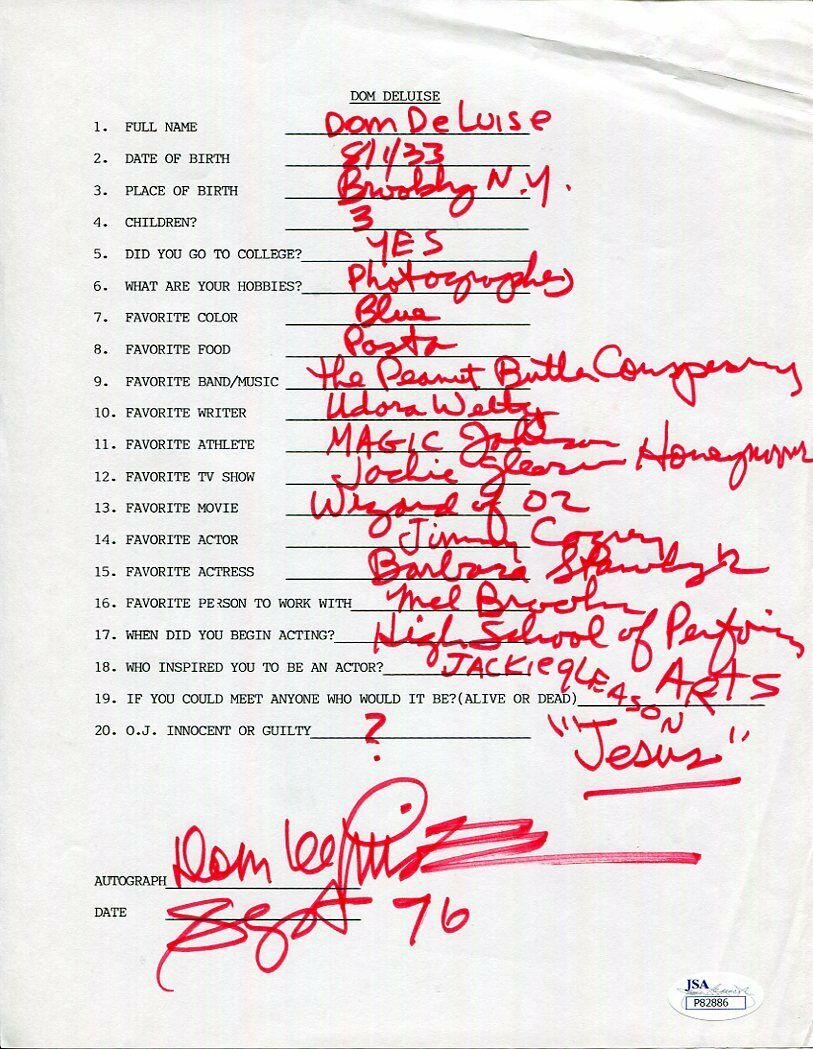 DOM DELUISE
1. FULL NAME Dom DeLuise
2. DATE OF BIRTH 8/1/33
3. PLACE OF BIRTH Brooklyn N.Y.
4. CHILDREN? 3
5. DID YOU GO TO COLLEGE? YES
6. WHAT ARE YOUR HOBBIES? Photography
7. FAVORITE COLOR Blue
8. FAVORITE FOOD Pasta
9. FAVORITE BAND/MUSIC the Peanut Butter Conspiracy
10. FAVORITE WRITER Udora Welty
11. FAVORITE ATHLETE MAGIC Johnson
12. FAVORITE TV SHOW Jackie Gleason Honeymooners
13. FAVORITE MOVIE Wizard of OZ
14. FAVORITE ACTOR Jimmy Cagney
15. FAVORITE ACTRESS Barbara Stanwyck
16. FAVORITE PERSON TO WORK WITH Mel Brooks
17. WHEN DID YOU BEGIN ACTING? High School of Performing ARTS
18. WHO INSPIRED YOU TO BE AN ACTOR? JACKIE GLEASON
19. IF YOU COULD MEET ANYONE WHO WOULD IT BE?(ALIVE OR DEAD) "Jesus"
20. O.J. INNOCENT OR GUILTY ?
AUTOGRAPH Dom DeLuise
DATE Sept 76
JSA
P82886